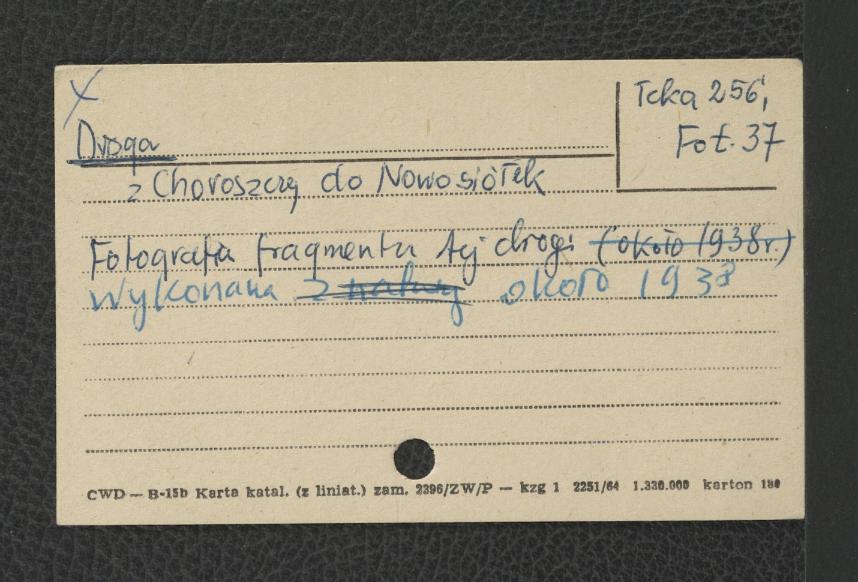 X
Teka 256,
Fot. 37
Droga
z Choroszczy do Nowosiółek
Fotografia fragmentu tej drogi (około 1938r.)
Wykonana z natury około 1938
CWD — B-15b Karta katal. (z liniat.) zam. 2396/ZW/P — kzg 1 2251/64 1.330.000 karton 180